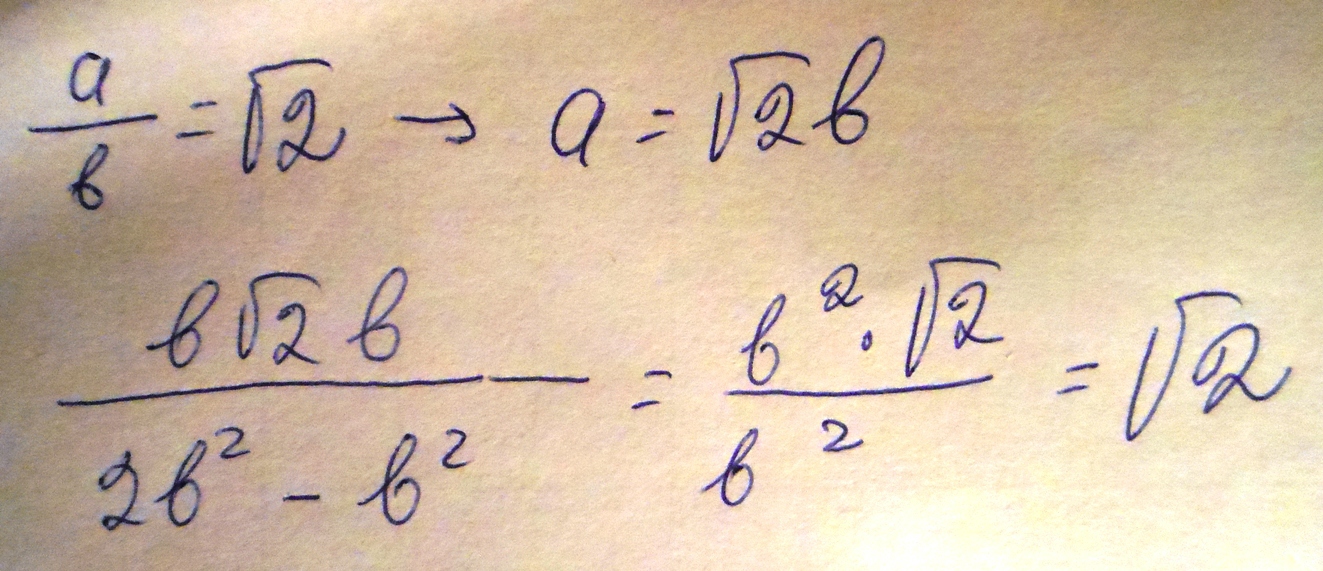 a/b = √2 → a = √2 b
b√2 b / 2b² - b² = b² · √2 / b² = √2